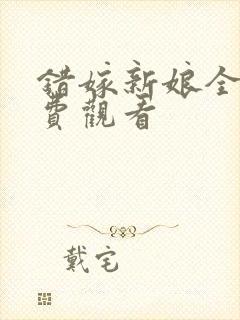 錯嫁新娘全
費觀看
戴宅